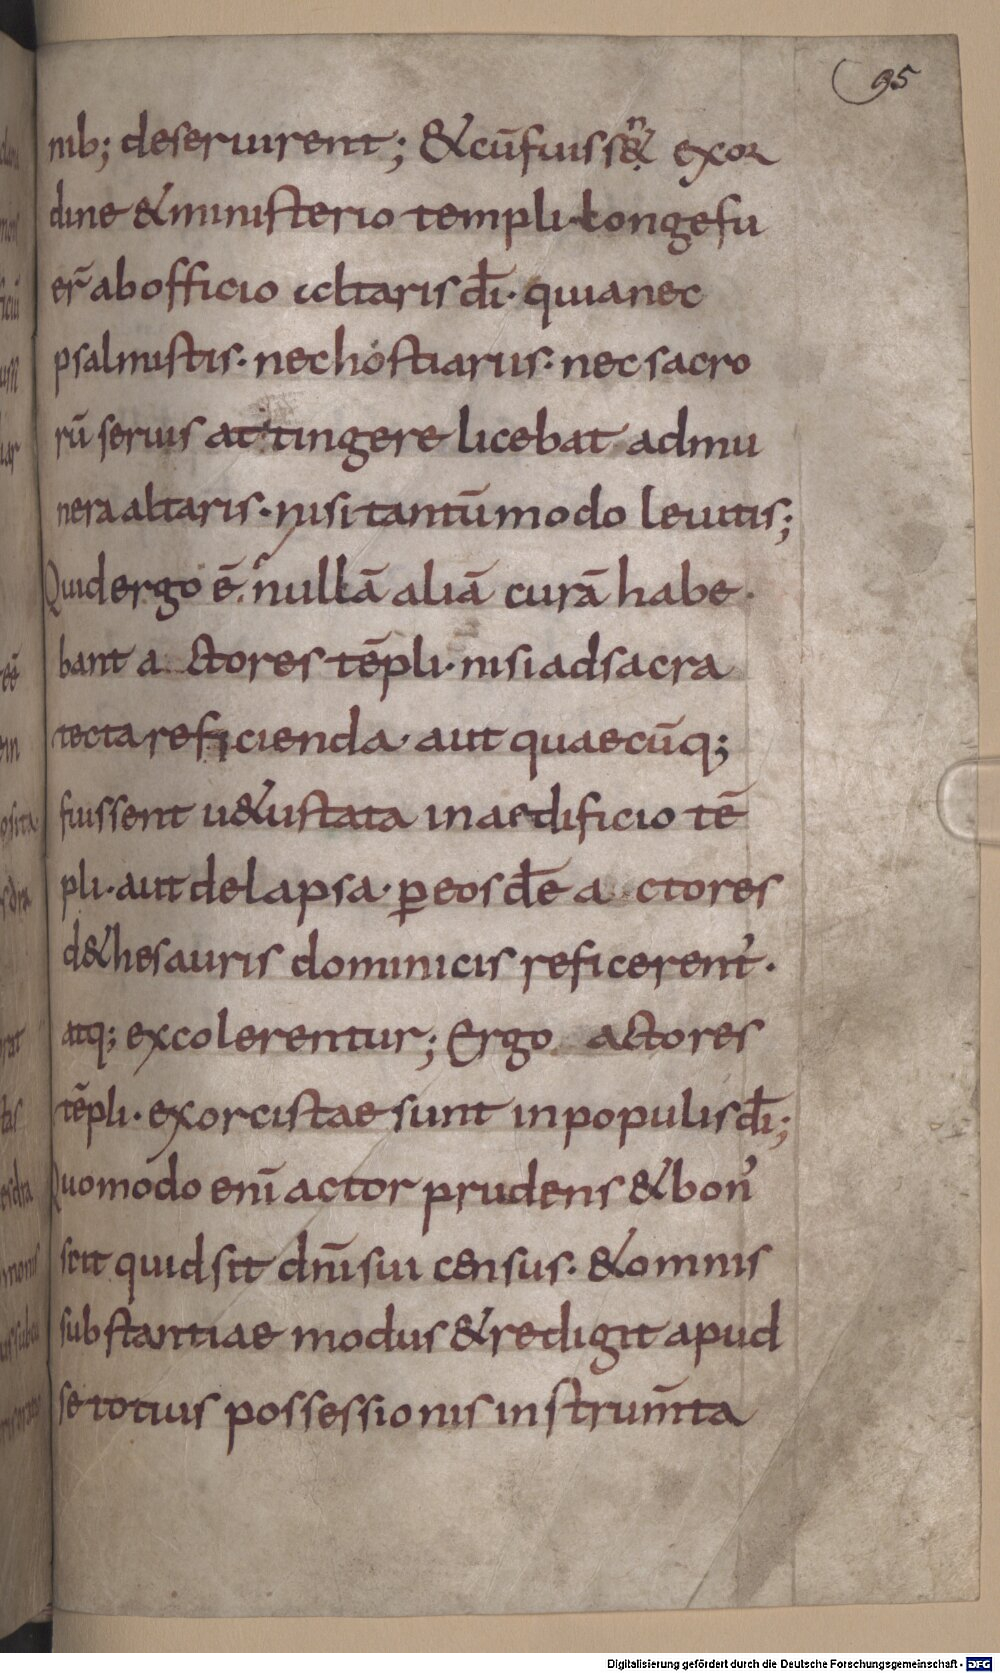 95
nib; deseruirent; &cū fuiss&n exor
dine & ministerio templi. longe fu
er̄ ab officio altaris dī. quia nec
psalmistis. nec hostiariis. nec sacro
rū seruis attingere licebat ad mu
nera altaris. nisi tantūmodo leuitis;
Quid ergo ē. nullā aliā curā habe
bant actores tēpli. nisi ad sacra
tecta reficienda. aut quaecūq;
fuissent u&ustata in aedificio tē
pli. aut delapsa. p eosdē actores
d& hesauris dominicis reficerent'.
atq; excolerentur; Ergo actores
tēpli. exorcistae sunt in populis dī;
Quomodo enī actor prudens & bon'
scit quid sit dn̄i sui census. & omnis
substantiae modus & redigit apud
se totius possessionis instrum̄ta
Digitalisierung gefördert durch die Deutsche Forschungsgemeinschaft - DFG